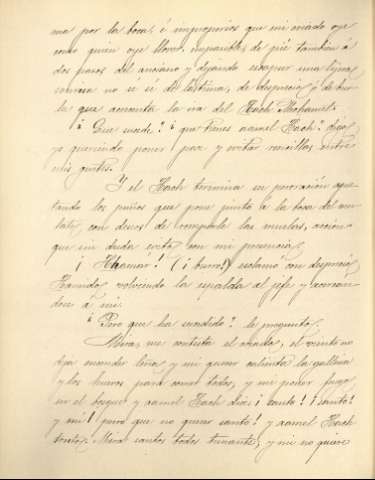 ma por la boca, é improperios que mi criado oye
como quien oye llover, impasible, de pié tambien á
dos pasos del anciano y dejando escapar una ligera
sonrisa no se si de lástima, de desprecio ó de burla
que aumenta la ira del Hach Mohamed.
¿Que sucede? ¿que tienes hamel Hach? digo
yo queriendo poner paz y evitar rencillas entre
mis gentes.
Y el Hach termina su peroracion apretando
los puños que pone junto á la boca del
con deseos de romperle las muelas, accion
que sin duda evita con mi presencia.
¡Hhamar! (¡burro!) esclama con desprecio
Hamido, volviendo la espalda al jefe y acercandose
á mi.
¿Pero que ha sucedido? le pregunto.
Mira, me contesta el criado, el viento no
deja encender leña y mi querer calienta la gallina
y los huevos para comer todos, y mi poner fuego
en el bosque y hamel Hach dice ¡santo! ¡santo!
y mi! pero que no querer santo! y hamel Hach
tonto. Mira santos todos tunante, y mi no quiere